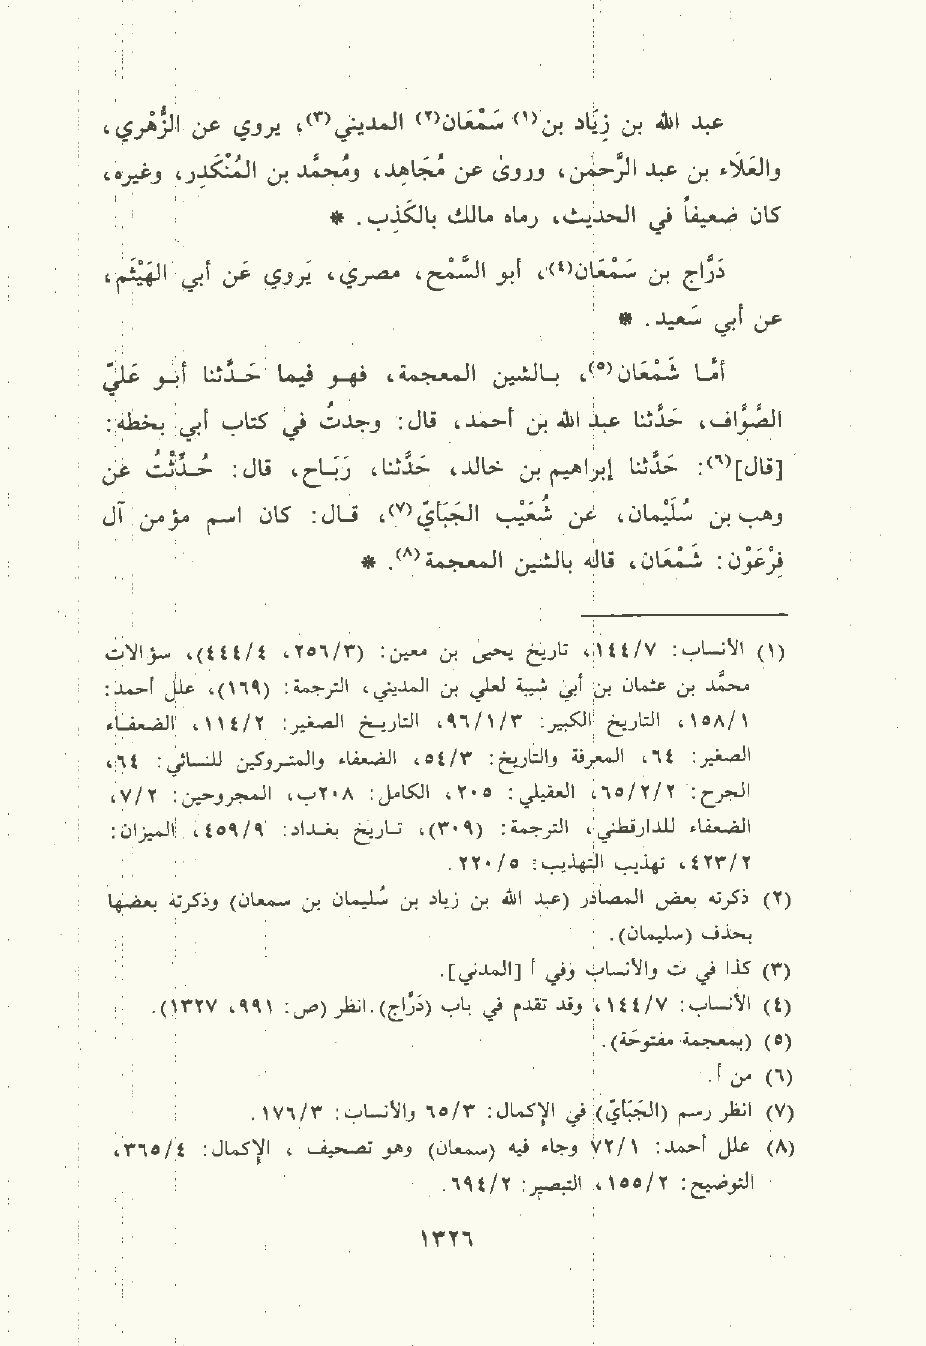 عبد الله بن زِيَاد بن(١) سَمْعَان(٢) المديني(٣)، يروي عن الزُّهْري،
والعَلَاء بن عبد الرَّحمن، وروىٰ عن مُجَاهِد، ومُحمَّد بن المُنْكَدِر، وغيره،
كان ضعيفاً في الحديث، رماه مالك بالكَذِب. *
دَرَّاج بن سَمْعَان(٤)، أبو السَّمْح، مصري، يَروي عَن أبي الهَيْثَم،
عن أبي سَعيد. *
أمَّـا شَمْعَان(٥)، بـالشين المعجمة، فهـو فيما حَـدَّثنا أبـو عَليّ
الصَّوَّاف، حَدَّثنا عبد الله بن أحمد، قال: وجدتُ في كتاب أبي بخطه:
[قال](٦): حَدَّثنا إبراهيم بن خالد، حَدَّثنا، رَبَـاح، قال: حُـدِّثْتُ عَن
وهب بن سُلَيْمان، عن شُعَيْب الجَبَايّ(٧)، قـال: كان اسم مؤمن آل
فِرْعَوْن: شَمْعَان، قاله بالشين المعجمة(٨). *
(١) الأنسـاب: ١٤٤/٧، تاريخ يحيىٰ بن معين: (٢٥٦/٣، ٤٤٤/٤)، سؤالات
محمَّد بن عثمان بن أبي شيبة لعلي بن المديني، الترجمة: (١٦٩)، علل أحمد:
١٥٨/١، التاريخ الكبير: ٩٦/١/٣، التاريـخ الصغير: ١١٤/٢، الضعفـاء
الصغير: ٦٤، المعرفة والتاريخ: ٥٤/٣، الضعفاء والمتـروكين للنسـائي: ٦٤،
الجرح: ٦٥/٢/٢، العقيلي: ٢٠٥، الكامل: ٢٠٨ب، المجروحين: ٧/٢،
الضعفاء للدارقطني، الترجمة: (٣٠٩)، تـاريخ بغـداد: ٤٥٩/٩، الميزان:
٤٢٣/٢، تهذيب التهذيب: ٢٢٠/٥.
(٢) ذكرته بعض المصادر (عبد الله بن زياد بن سُليمان بن سمعان) وذكرته بعضها
بحذف (سليمان).
(٣) كذا في ت والأنسـاب وفي أ [المدني].
(٤) الأنسـاب: ١٤٤/٧، وقد تقدم في باب (دَرَّاج). انظر (ص: ٩٩١، ١٣٢٧).
(٥) (بمعجمة مفتوحَة).
(٦) من أ.
(٧) انظر رسم (الجَبَايّ) في الإكمال: ٦٥/٣ والأنسـاب: ١٧٦/٣.
(٨) علل أحمد: ٧٢/١ وجاء فيه (سمعان) وهو تصحيف ، الإكمال: ٣٦٥/٤،
التوضيح: ١٥٥/٢، التبصير: ٦٩٤/٢.
١٣٢٦